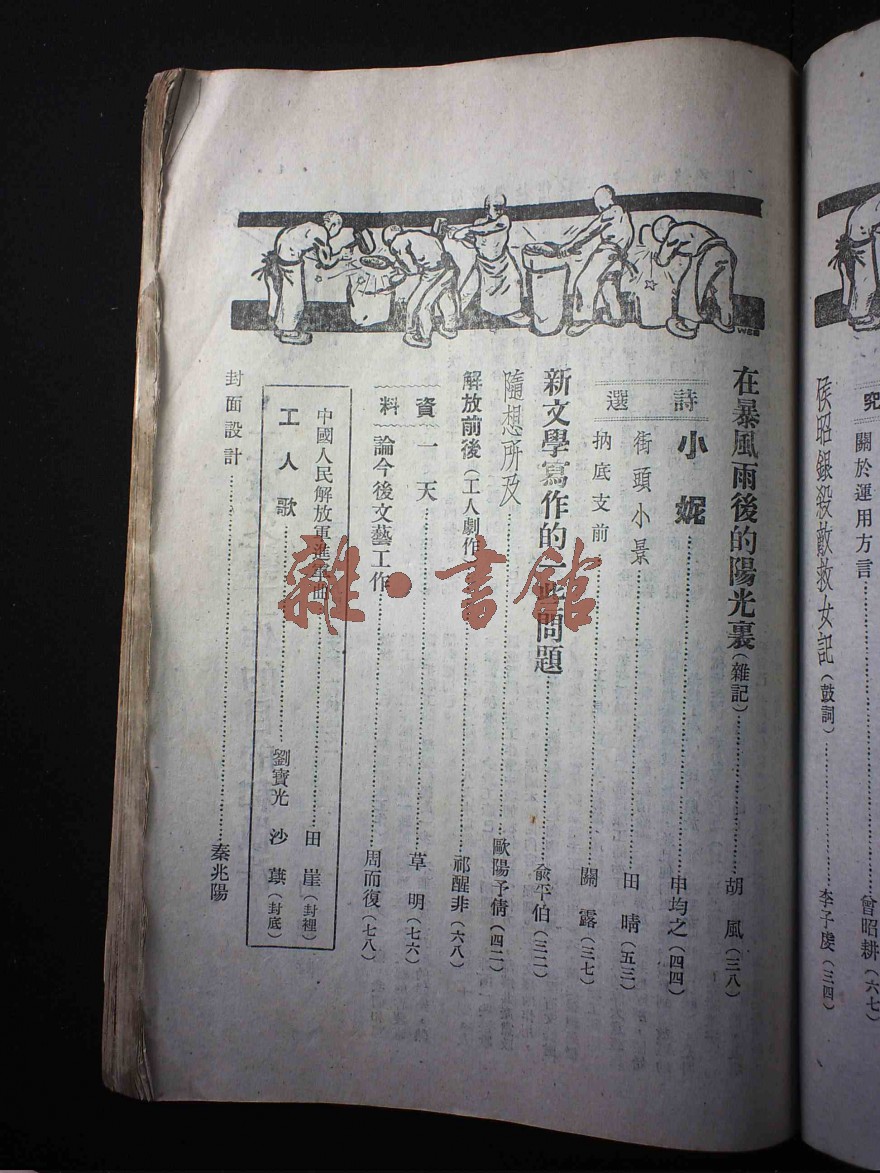 究
關於運用方言……曾昭耕(六七)
侯昭銀殺敵救女記(鼓詞)……李子虔(三四)
在暴風雨後的陽光裏(雜記)……胡 風(三八)
詩選
小妮……申均之(四四)
街頭小景……田 晴(五三)
抐底支前……關 露(三七)
新文學寫作的一些問題……俞平伯(三二)
隨想所及……歐陽予倩(四二)
解放前後(工人劇作)……祁醒非(六八)
資料
一 天……草 明(七六)
論今後文藝工作……周而復(七八)
中國人民解放軍進軍曲……田 崖(封裡)
工 人 歌……劉寶光 沙 蕻(封底)
封面設計……秦兆陽
雜·書館